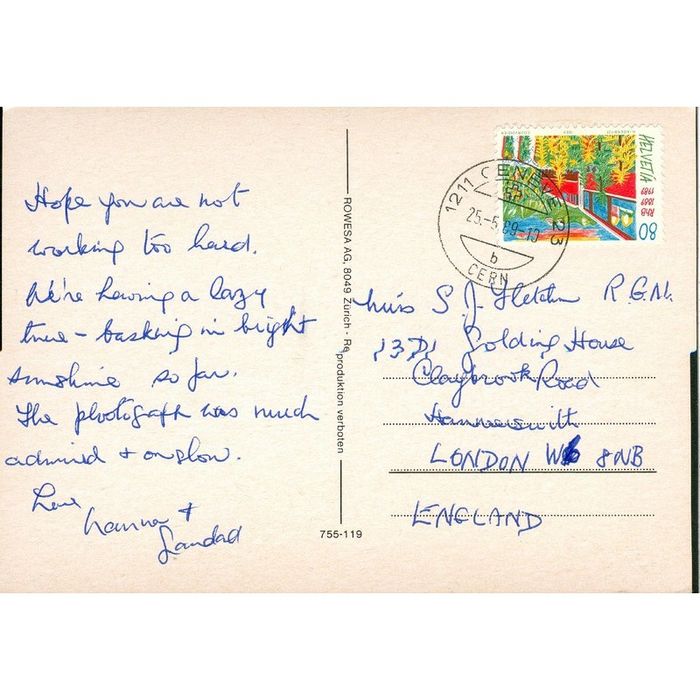 Hope you are not
working too hard.
We're having a lazy
time - basking in bright
sunshine so far.
The photograph was much
admired + on show.
Love
+
Grandad
ROWESA AG, 8049 Zürich - Re produktion verboten
755-119
HELVETIA
1889 1989
80
1211 GENEVE 23
25.-5.89-10
b
CERN
Miss S J Fletcher R.G.N.
Golding House
Claybrook Road
Hammersmith
LONDON W6 8NB
ENGLAND